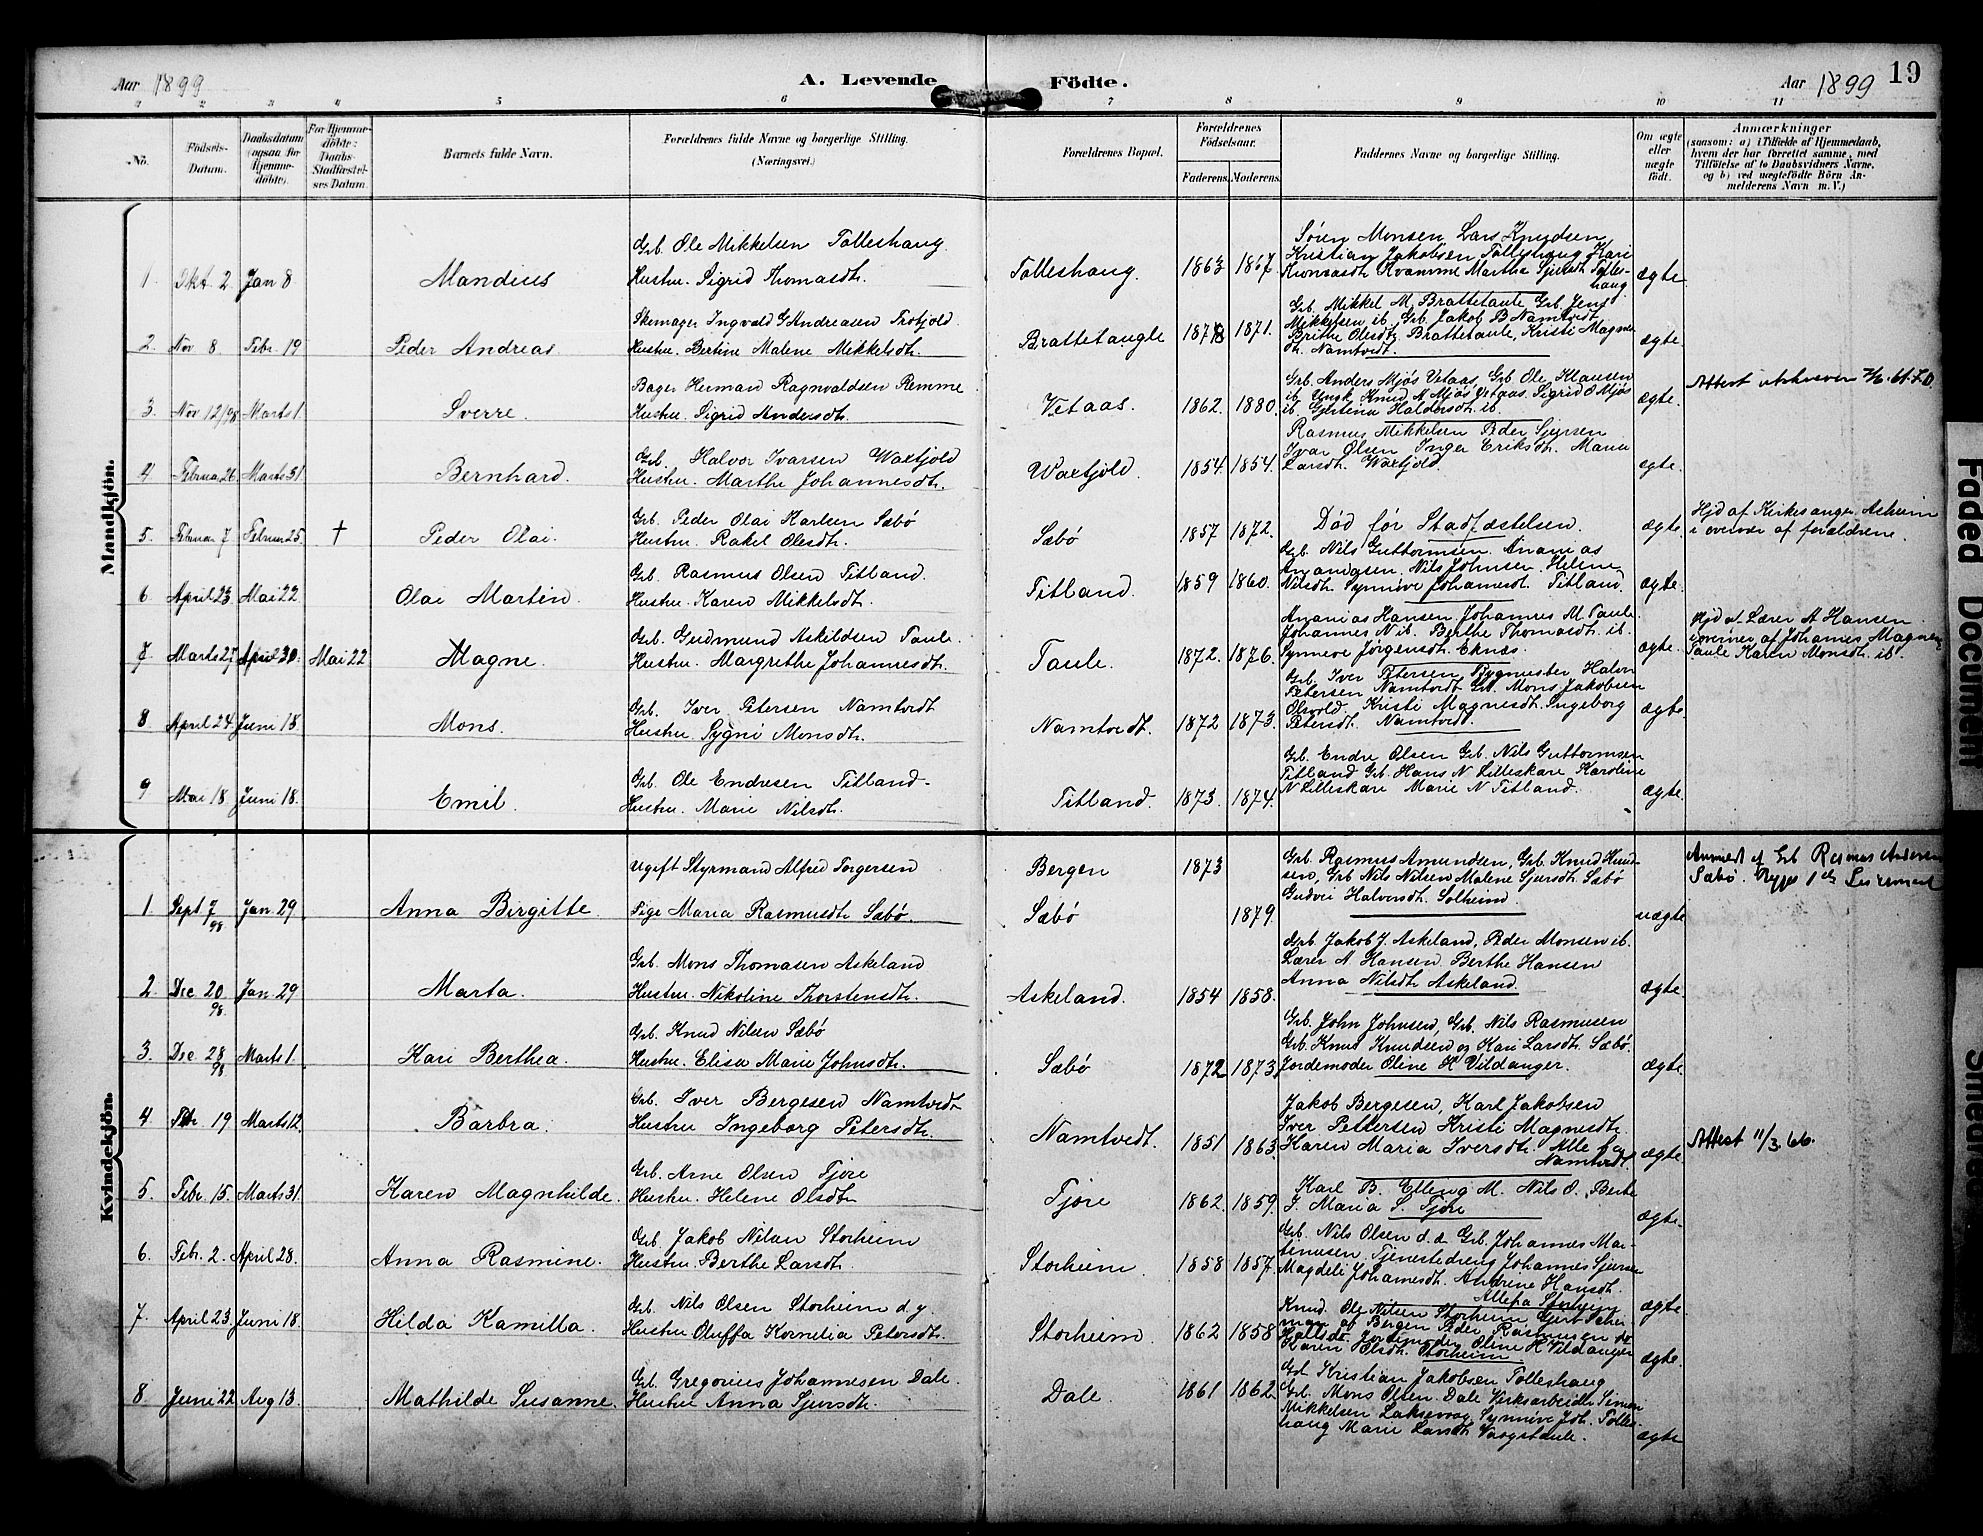 Aar 1899
A. Levende Födte.
Aar 1899 19
1 2 3 4 5 6 7 8 9 10 11
No.
Födsels-Datum.
Daabsdatum (ogsaa for Hjemme-döbte).
For Hjemme-döbte: Daabs-Stadfæstel-ses Datum.
Barnets fulde Navn.
Forældrenes fulde Navne og borgerlige Stilling. (Næringsvei.)
Forældrenes Bopæl.
Forældrenes Födselsaar.
Faderens. Moderens.
Faddernes Navne og borgerlige Stilling.
Om ægte eller uægte födt.
Anmærkninger
(saasom: a) i Tilfælde af Hjemmedaab, hvem der har forrettet samme, med Tilföielse af to Daabsvidners Navne, og b) ved uægtefödte Börn An-melderens Navn m. V.)
Mandkjön.
1. Okt. 2 Jan 8 Mandius
Grb. Ole Mikkelsen Tolleshaug.
Hustru. Sigrid Thomasdtr.
Tolleshaug. 1863 1867.
Søren Monsen Lars Knudsen
Kristian Jakobsen Tolleshaug Kari
Kvamme Martha Sjursdt Tolles-
haug
ægte
2. Nov 8 Febr. 19 Peder Andreas
Skomager Ingvald G Andreasen
Hustru. Bertine Malene Mikkelsdtr.
Brattetaugle 1871.
Grb. Mikkel M. Brattetaule Grb. Jens
Mikkelsen ib. Grb. Jakob B Namtvedt
Brithe Olesdtr Brattetaule, Kristi Magne
dtr. Namtvedt.
ægte.
3. Nov 12/98 Marts 1 Sverre.
Bager Herman Ragnvaldsen Remme
Hustru. Sigrid Andersdtr.
Vetaas. 1862. 1880.
Grb. Anders Mjøs Vetaas, Grb. Ole Klausen
ib. Ungk. Knud A Mjøs Vetaas. Sigrid O Mjøs
ib. Gjertina Haldorsdtr. ib.
ægte.
Attest
4 Februar 26. Marts 31 Bernhard.
Grb. Halvor Ivarsen Waxfjold
Hustru. Marthe Johannesdtr.
Waxfjold. 1854. 1854.
Rasmus Mikkelsen Peder Sjursen
Ivar Olsen Inger Eriksdtr. Marie
Larsdtr. Waxfjold.
ægte.
5. Februar 7 Februar 25. † Peder Olai.
Grb. Peder Olai Karlsen Sæbö
Hustru. Rakel Olesdtr.
Sæbö 1857 1872.
Död för Stadfæstelsen.
ægte.
Hjd af Kirkesanger Askeim
i overvær af forældrene.
6 April 23. Mai 22 Olai Martin.
Grb. Rasmus Olsen Titland.
Hustru. Karen Mikkelsdtr.
Titland. 1859 1860.
Grb. Nils Guttormsen. Ananias
Ananiasen. Nils Johnsen. Helene
Nilsdtr. Synnöve Johannesdt. Titland.
ægte.
7 Marts 27 April 30. Mai 22 Magne.
Grb. Gudmund Askildsen Taule.
Hustru. Margrethe Johannesdtr.
Taule. 1872. 1876.
Ananias Hansen Johannes M Taule
Johannes N ib. Berthe Thomasdtr. ib.
Synneve Jörgensdtr. Eknæs.
ægte.
Hjd af Lærer A Hansen
i overvær af Johannes Magnes
Taule Karen Monsdtr. ib.
8 April 24. Juni 18. Mons.
Grb. Iver Petersen Namtvedt
Hustru Sygni Monsdtr.
Namtvedt. 1872 1873.
Grb. Iver Petersen Bygmester Halvor
Petersen Namtvedt Grb. Mons Jakobsen
Kristi Magnesdtr. Ingeborg
Petersdt. Namtvedt.
ægte.
9 Mai 18. Juni 18. Emil.
Grb. Ole Endresen Titland-
Hustru. Marie Nilsdtr.
Titland. 1873. 1874.
Grb. Endre Olsen Grb. Nils Guttormsen
Titland Grb. Hans N Lilleskare Karoline
N Lilleskare Marie N Titland.
ægte.
Kvindekjön.
1 Sept 7 98. Jan 29 Anna Birgitte.
Ugift Styrmand Alfred Torgersen
Pige Maria Rasmusdtr Sæbö.
Bergen 1873
Sæbö 1879.
Grb. Rasmus Amundsen, Grb. Knud Knud-
sen, Grb Nils Nilsen Malene Sjursdtr. Sæbö
Gudvei Halvorsdtr. Solheim.
uægte.
Anmeld af Grb Rasmus
Sæbö.
2. Dec 20 98. Jan. 29 Marta.
Grb. Mons Thomasen Askeland
Hustru. Nikoline Thorstensdtr.
Askeland. 1854 1858.
Grb. Jakob J. Askeland, Peder Monsen ib.
Lærer A Hansen Berthe Hansen
Anna Nilsdtr Askeland.
ægte.
3. Dec 28 98 Marts 1. Kari Berthea.
Grb. Knud Nilsen Sæbö
Hustru. Elisa Marie Johnsdtr.
Sæbö 1872 1873
Grb. John Johnsen, Grb. Nils Rasmusen
Grb. Knut Knudsen og Kari Larsdtr. Sæbö.
Jordemoder Oline H Vildanger.
ægte.
4 Febr 19 Marts 12. Barbra.
Grb. Iver Bergesen Namtvedt-
Hustru Ingeborg Petersdtr.
Namtvedt. 1851 1863
Jakob Bergesen, Karl Jakobsen
Iver Pettersen Kristi Magnesdtr.
Karen Maria Iversdtr. Alle fra
Namtvedt
ægte.
Attest 11/3 66.
5. Febr. 15. Marts 31. Karen Magnhilde.
Grb. Arne Olsen Fjöre
Hustru. Helene Olsdtr
Fjöre 1862. 1859.
Karl B. Elling M. Nils O. Berte
J. Maria S. Fjöre
ægte.
6. Febr. 2. April 28. Anna Rasmine.
Grb. Jakob Nilsen Storheim
Hustru. Berthe Larsdtr.
Storheim 1858 1857
Grb. Nils Olsen d. æ Grb. Johannes Mar-
tinusen, Tjenestedreng Johannes Sjursen
Magdeli Johannesdtr. Andrine Hansdtr.
Alle fra Storheim
ægte
7. April 23. Juni 18. Hilda Kamilla.
Grb. Nils Olsen Storheim d. y.
Hustru Oluffa Kornelia Petersdtr.
Storheim. 1862 1858
Knud. Ole Nilsen Storheim, Gjert
man af Bergen Peder Rasmusen
Jordemoder Oline H Vildanger
Karen Olsdtr. Storheim
ægte.
8 Juni 22 Aug 13. Mathilde Susanne.
Grb. Gregorius Johannesen Dale.
Hustru Anna Sjursdtr.
Dale. 1861 1862
Grb Kristian Jakobsen Tolleshaug
Grb. Mons Olsen Dale Verksarbeider Simon
Mikkelsen Laksevaag, Synnöve Joh. Tolles-
haug Marie Larsdtr.
ægte
Faded Document
Smeared